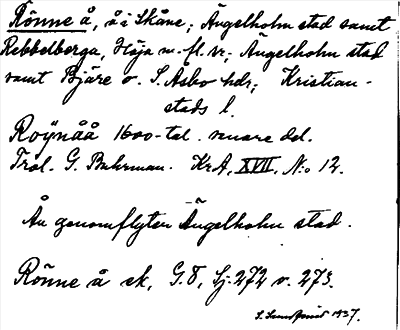 Rönne å, å i Skåne; Ängelholm stad samt
Rebbelberga, Höja m. fl. sr; Ängelholm stad
samt Bjäre o. S. Åsbo hdr; Kristian-
stads l.
Roÿnåå 1600-tal. senare del.
Trol. G. Buhrman. KrA, XVII, N:o 12.
Ån genomflyter Ängelholm stad.
Rönne å ek, G.8, Sj. 272 o. 273.
1937.